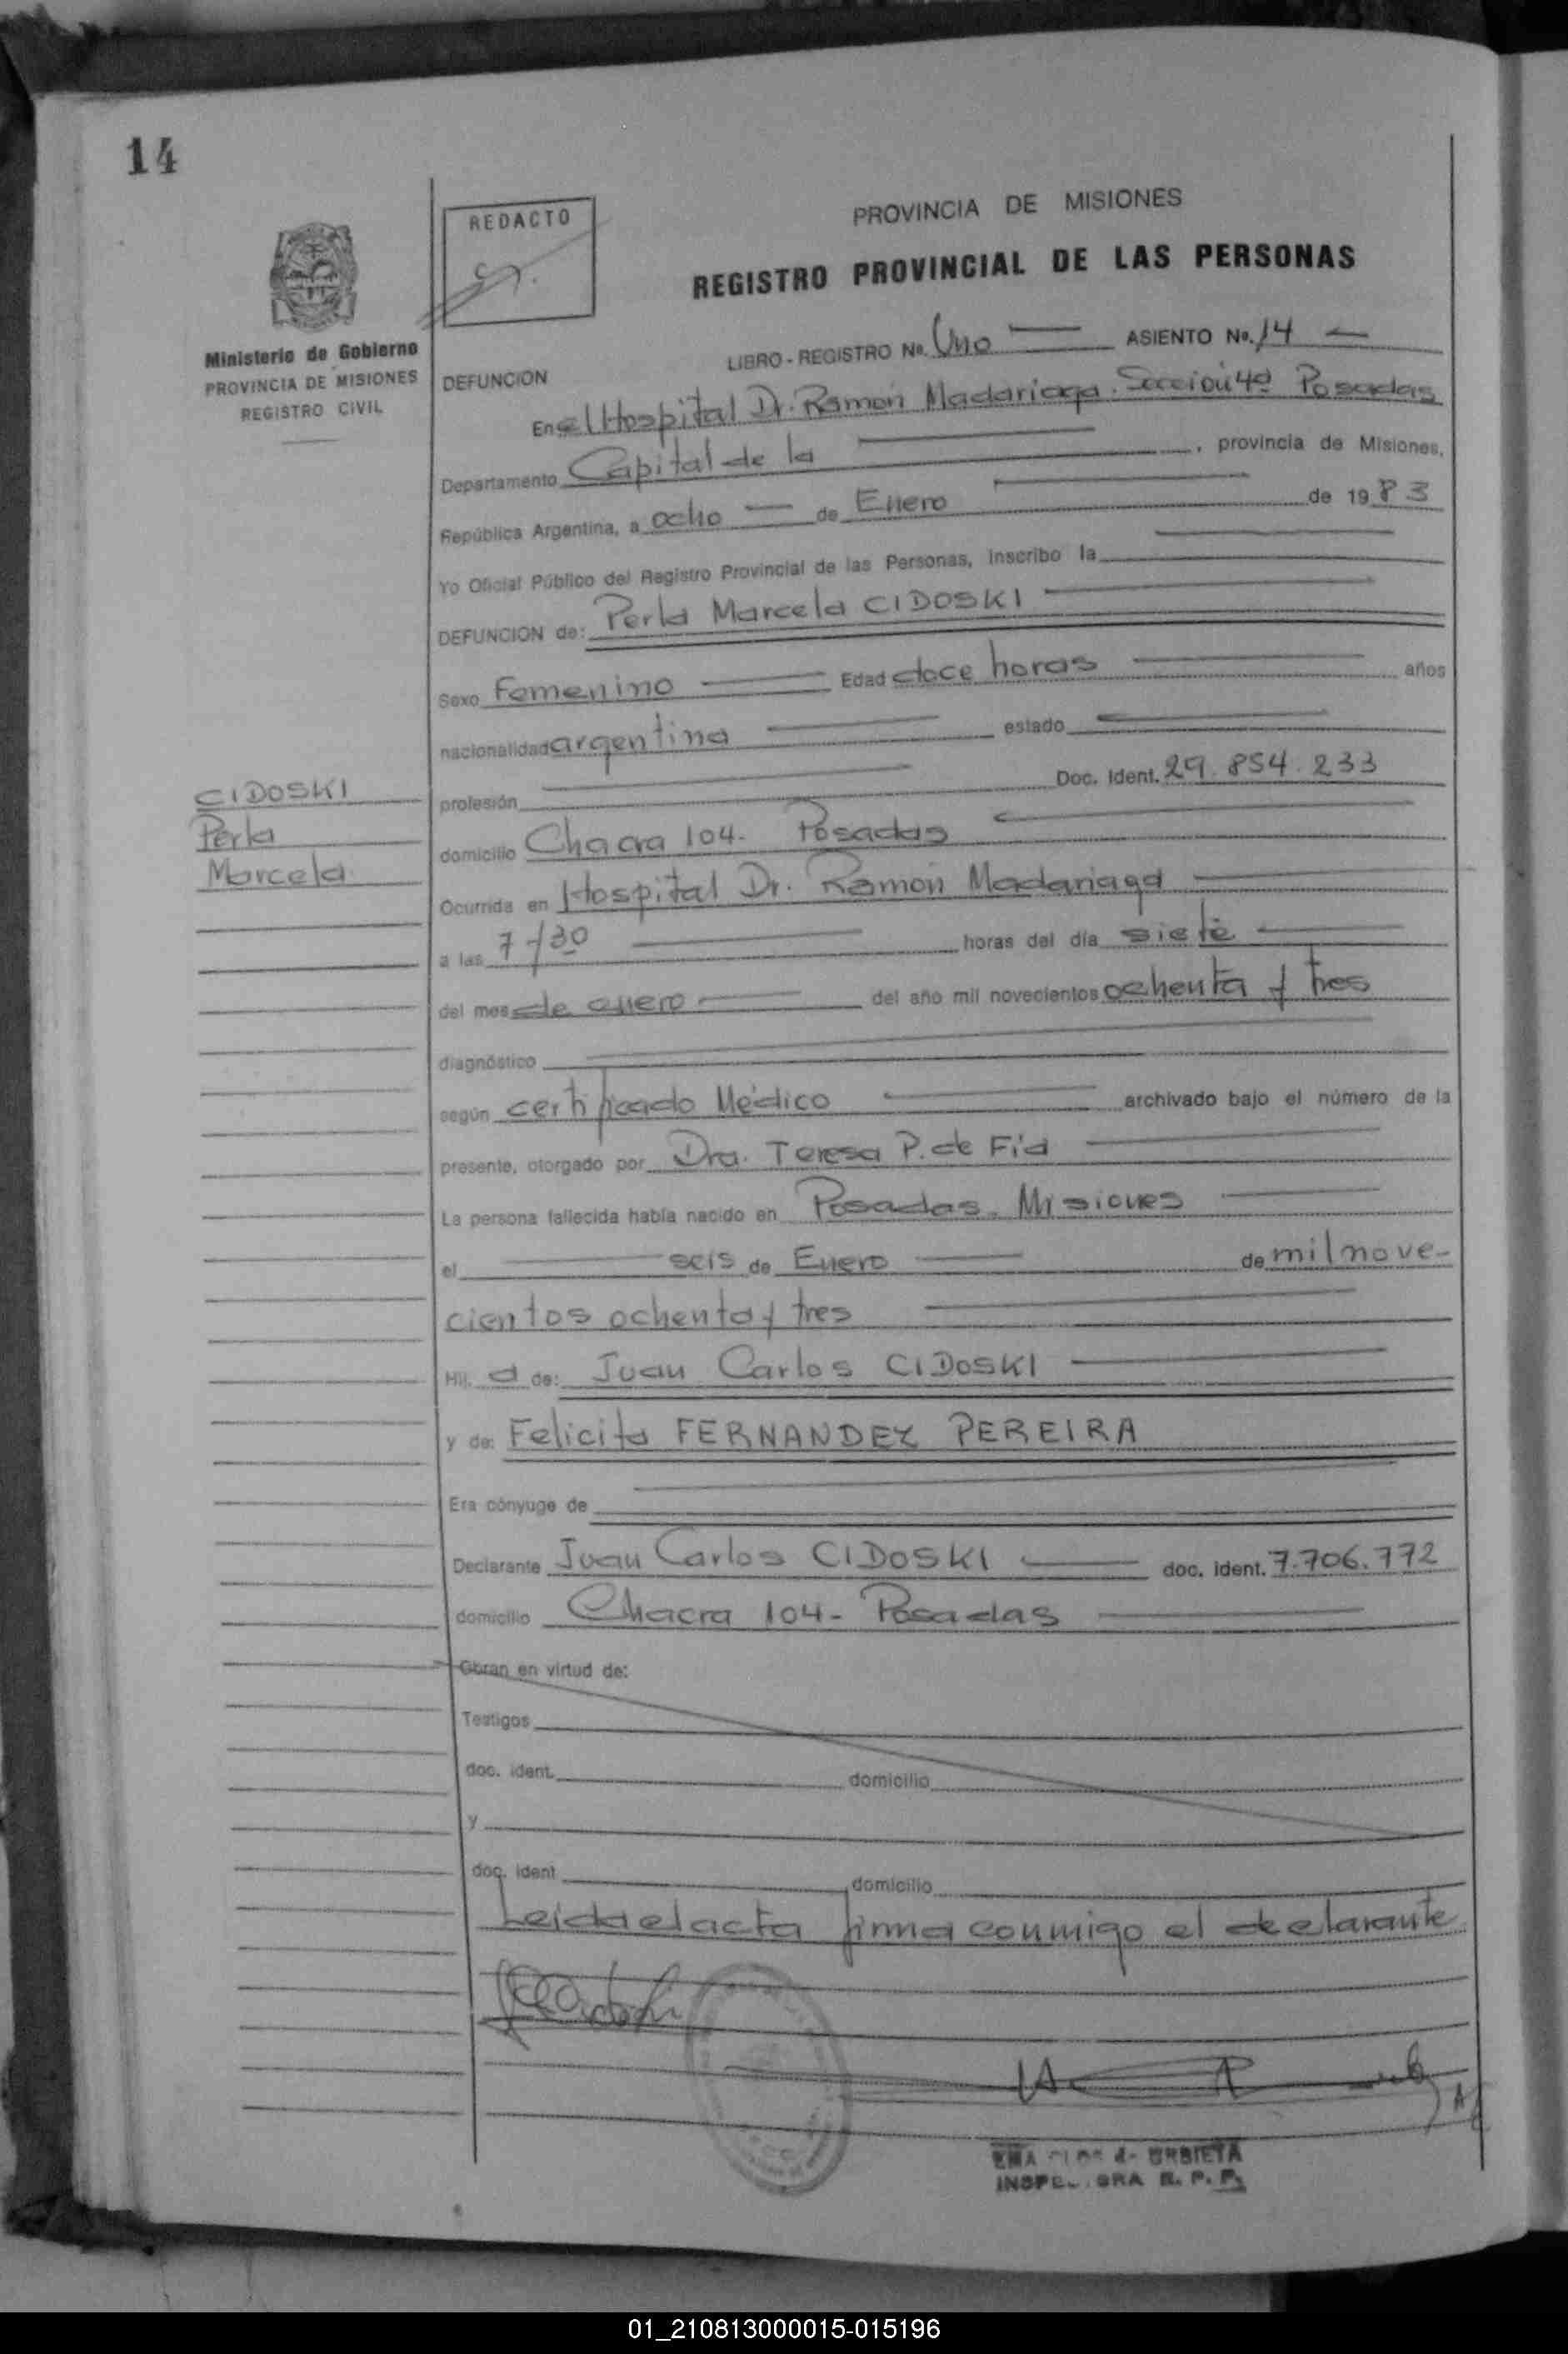 14
REDACTO
PROVINCIA DE MISIONES
REGISTRO PROVINCIAL DE LAS PERSONAS
Ministerio de Gobierno
PROVINCIA DE MISIONES
REGISTRO CIVIL
LIBRO - REGISTRO No. Uno ASIENTO No. 14
DEFUNCION
En el Hospital Dr. Ramón Madariaga. Sección 4a Posadas
Departamento Capital de la , provincia de Misiones,
República Argentina, a ocho de Enero de 1983
Yo Oficial Público del Registro Provincial de las Personas, inscribo la
DEFUNCION de: Perla Marcela CIDOSKI
Sexo Femenino Edad doce horas años
nacionalidad argentina estado
profesión Doc. Ident. 29.854.233
CIDOSKI
Perla
Marcela
domicilio Chacra 104. Posadas
Ocurrida en Hospital Dr. Ramón Madariaga
a las 7/30 horas del día siete
del mes de enero del año mil novecientos ochenta y tres
diagnóstico
según certificado Médico archivado bajo el número de la
presente, otorgado por Dra. Teresa P. de Fia
La persona fallecida había nacido en Posadas. Misiones
el seis de Enero de mil nove-
cientos ochenta y tres
Hij. a de: Juan Carlos CIDOSKI
y de: Felicita FERNANDEZ PEREIRA
Era cónyuge de
Declarante Juan Carlos CIDOSKI doc. ident. 7.706.772
domicilio Chacra 104- Posadas
Obran en virtud de:
Testigos
doc. ident. domicilio
y
doc. ident domicilio
Leida el acta firma conmigo el declarante
URBIETA
R. P. P.
01_210813000015-015196